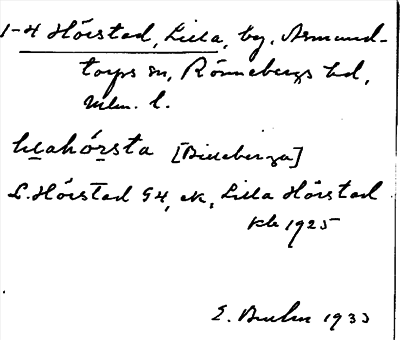 1-4 Hörstad, Lilla, by, Asmund-
torps sn, Rönnebergs hd,
Mlm. l.
lilahórsta [Billeberga]
L. Hörstad G4, ek, Lilla Hörstad
kb 1925
E. Bruhn 1933